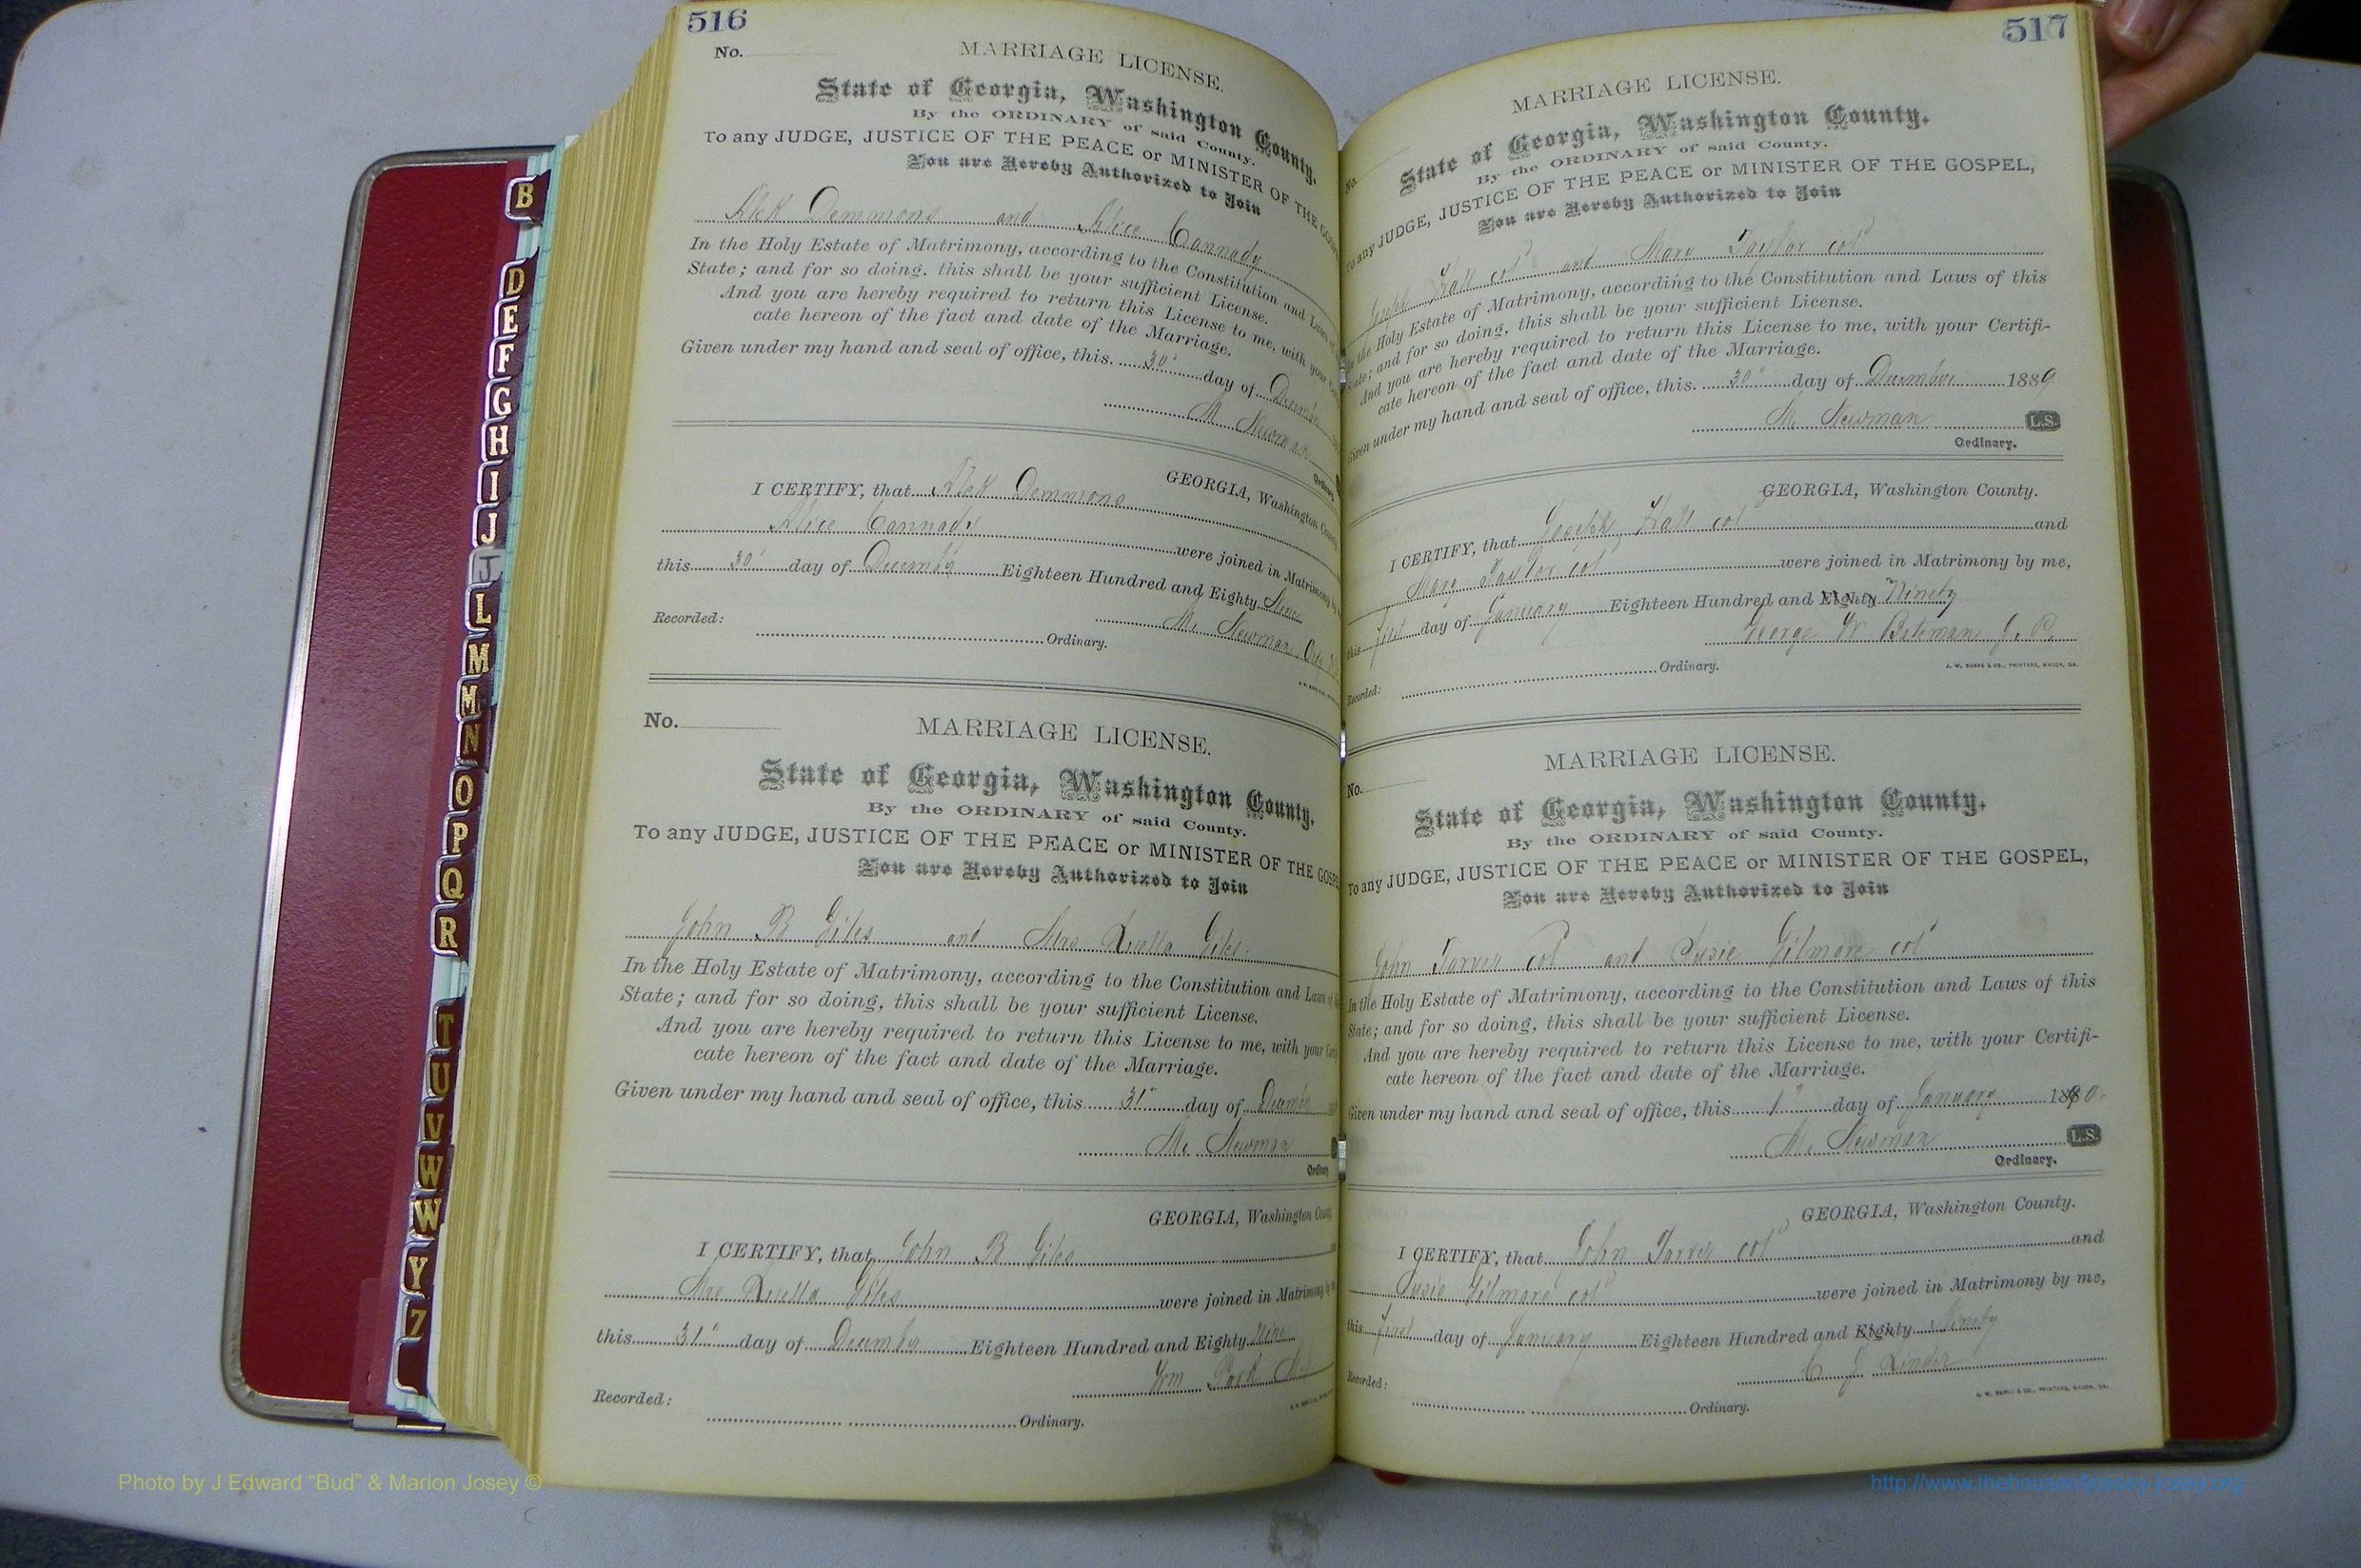 516
No.
MARRIAGE LICENSE.
State of Georgia, Washington County.
By the ORDINARY of said County.
To any JUDGE, JUSTICE OF THE PEACE or MINISTER OF THE
You are Hereby Authorized to Join
Alek Demmons and Alice Cannady
In the Holy Estate of Matrimony, according to the Constitution and Laws of
State; and for so doing, this shall be your sufficient License.
And you are hereby required to return this License to me, with your
cate hereon of the fact and date of the Marriage.
Given under my hand and seal of office, this 30" day of December
M. Newman
Ordinary.
GEORGIA, Washington County
I CERTIFY, that Alek Demmons
Alice Cannady were joined in Matrimony by
this 30" day of December Eighteen Hundred and Eighty Nine
M. Newman
Recorded: Ordinary.
No.
MARRIAGE LICENSE.
State of Georgia, Washington County.
By the ORDINARY of said County.
To any JUDGE, JUSTICE OF THE PEACE or MINISTER OF THE GOSP
You are Hereby Authorized to Join
John B Giles and Mrs Luella Giles
In the Holy Estate of Matrimony, according to the Constitution and Laws of
State; and for so doing, this shall be your sufficient License.
And you are hereby required to return this License to me, with your
cate hereon of the fact and date of the Marriage.
Given under my hand and seal of office, this 31" day of December
M. Newman
Ordinary
GEORGIA, Washington County
I CERTIFY, that John B Giles
Mrs Luella Giles were joined in Matrimony by
this 31" day of December Eighteen Hundred and Eighty Nine
Wm Park
Recorded: Ordinary.
517
No.
MARRIAGE LICENSE.
State of Georgia, Washington County.
By the ORDINARY of said County.
To any JUDGE, JUSTICE OF THE PEACE or MINISTER OF THE GOSPEL,
You are Hereby Authorized to Join
Joseph Hall col and Mary Taylor col
In the Holy Estate of Matrimony, according to the Constitution and Laws of this
State; and for so doing, this shall be your sufficient License.
And you are hereby required to return this License to me, with your Certifi-
cate hereon of the fact and date of the Marriage.
Given under my hand and seal of office, this 30" day of December 1889
M. Newman L.S.
Ordinary.
GEORGIA, Washington County.
I CERTIFY, that Joseph Hall col and
Mary Taylor col were joined in Matrimony by me,
this first day of January Eighteen Hundred and Eighty Ninety
George W Bateman J. P.
Recorded: Ordinary.
J. W. BURKE & CO., PRINTERS, MACON, GA.
No.
MARRIAGE LICENSE.
State of Georgia, Washington County.
By the ORDINARY of said County.
To any JUDGE, JUSTICE OF THE PEACE or MINISTER OF THE GOSPEL,
You are Hereby Authorized to Join
John Tarver col and Susie Gilmore col
In the Holy Estate of Matrimony, according to the Constitution and Laws of this
State; and for so doing, this shall be your sufficient License.
And you are hereby required to return this License to me, with your Certifi-
cate hereon of the fact and date of the Marriage.
Given under my hand and seal of office, this 1" day of January 1890.
M. Newman L.S.
Ordinary.
GEORGIA, Washington County.
I CERTIFY, that John Tarver col and
Susie Gilmore col were joined in Matrimony by me,
this first day of January Eighteen Hundred and Eighty Ninety
C. J. Linder
Recorded: Ordinary.
J. W. BURKE & CO., PRINTERS, MACON, GA.
B
D
E
F
G
H
I
J
J
L
M
M
N
O
P
Q
R
T
U
V
W
W
Y
Z
Photo by J Edward “Bud” & Marion Josey ©